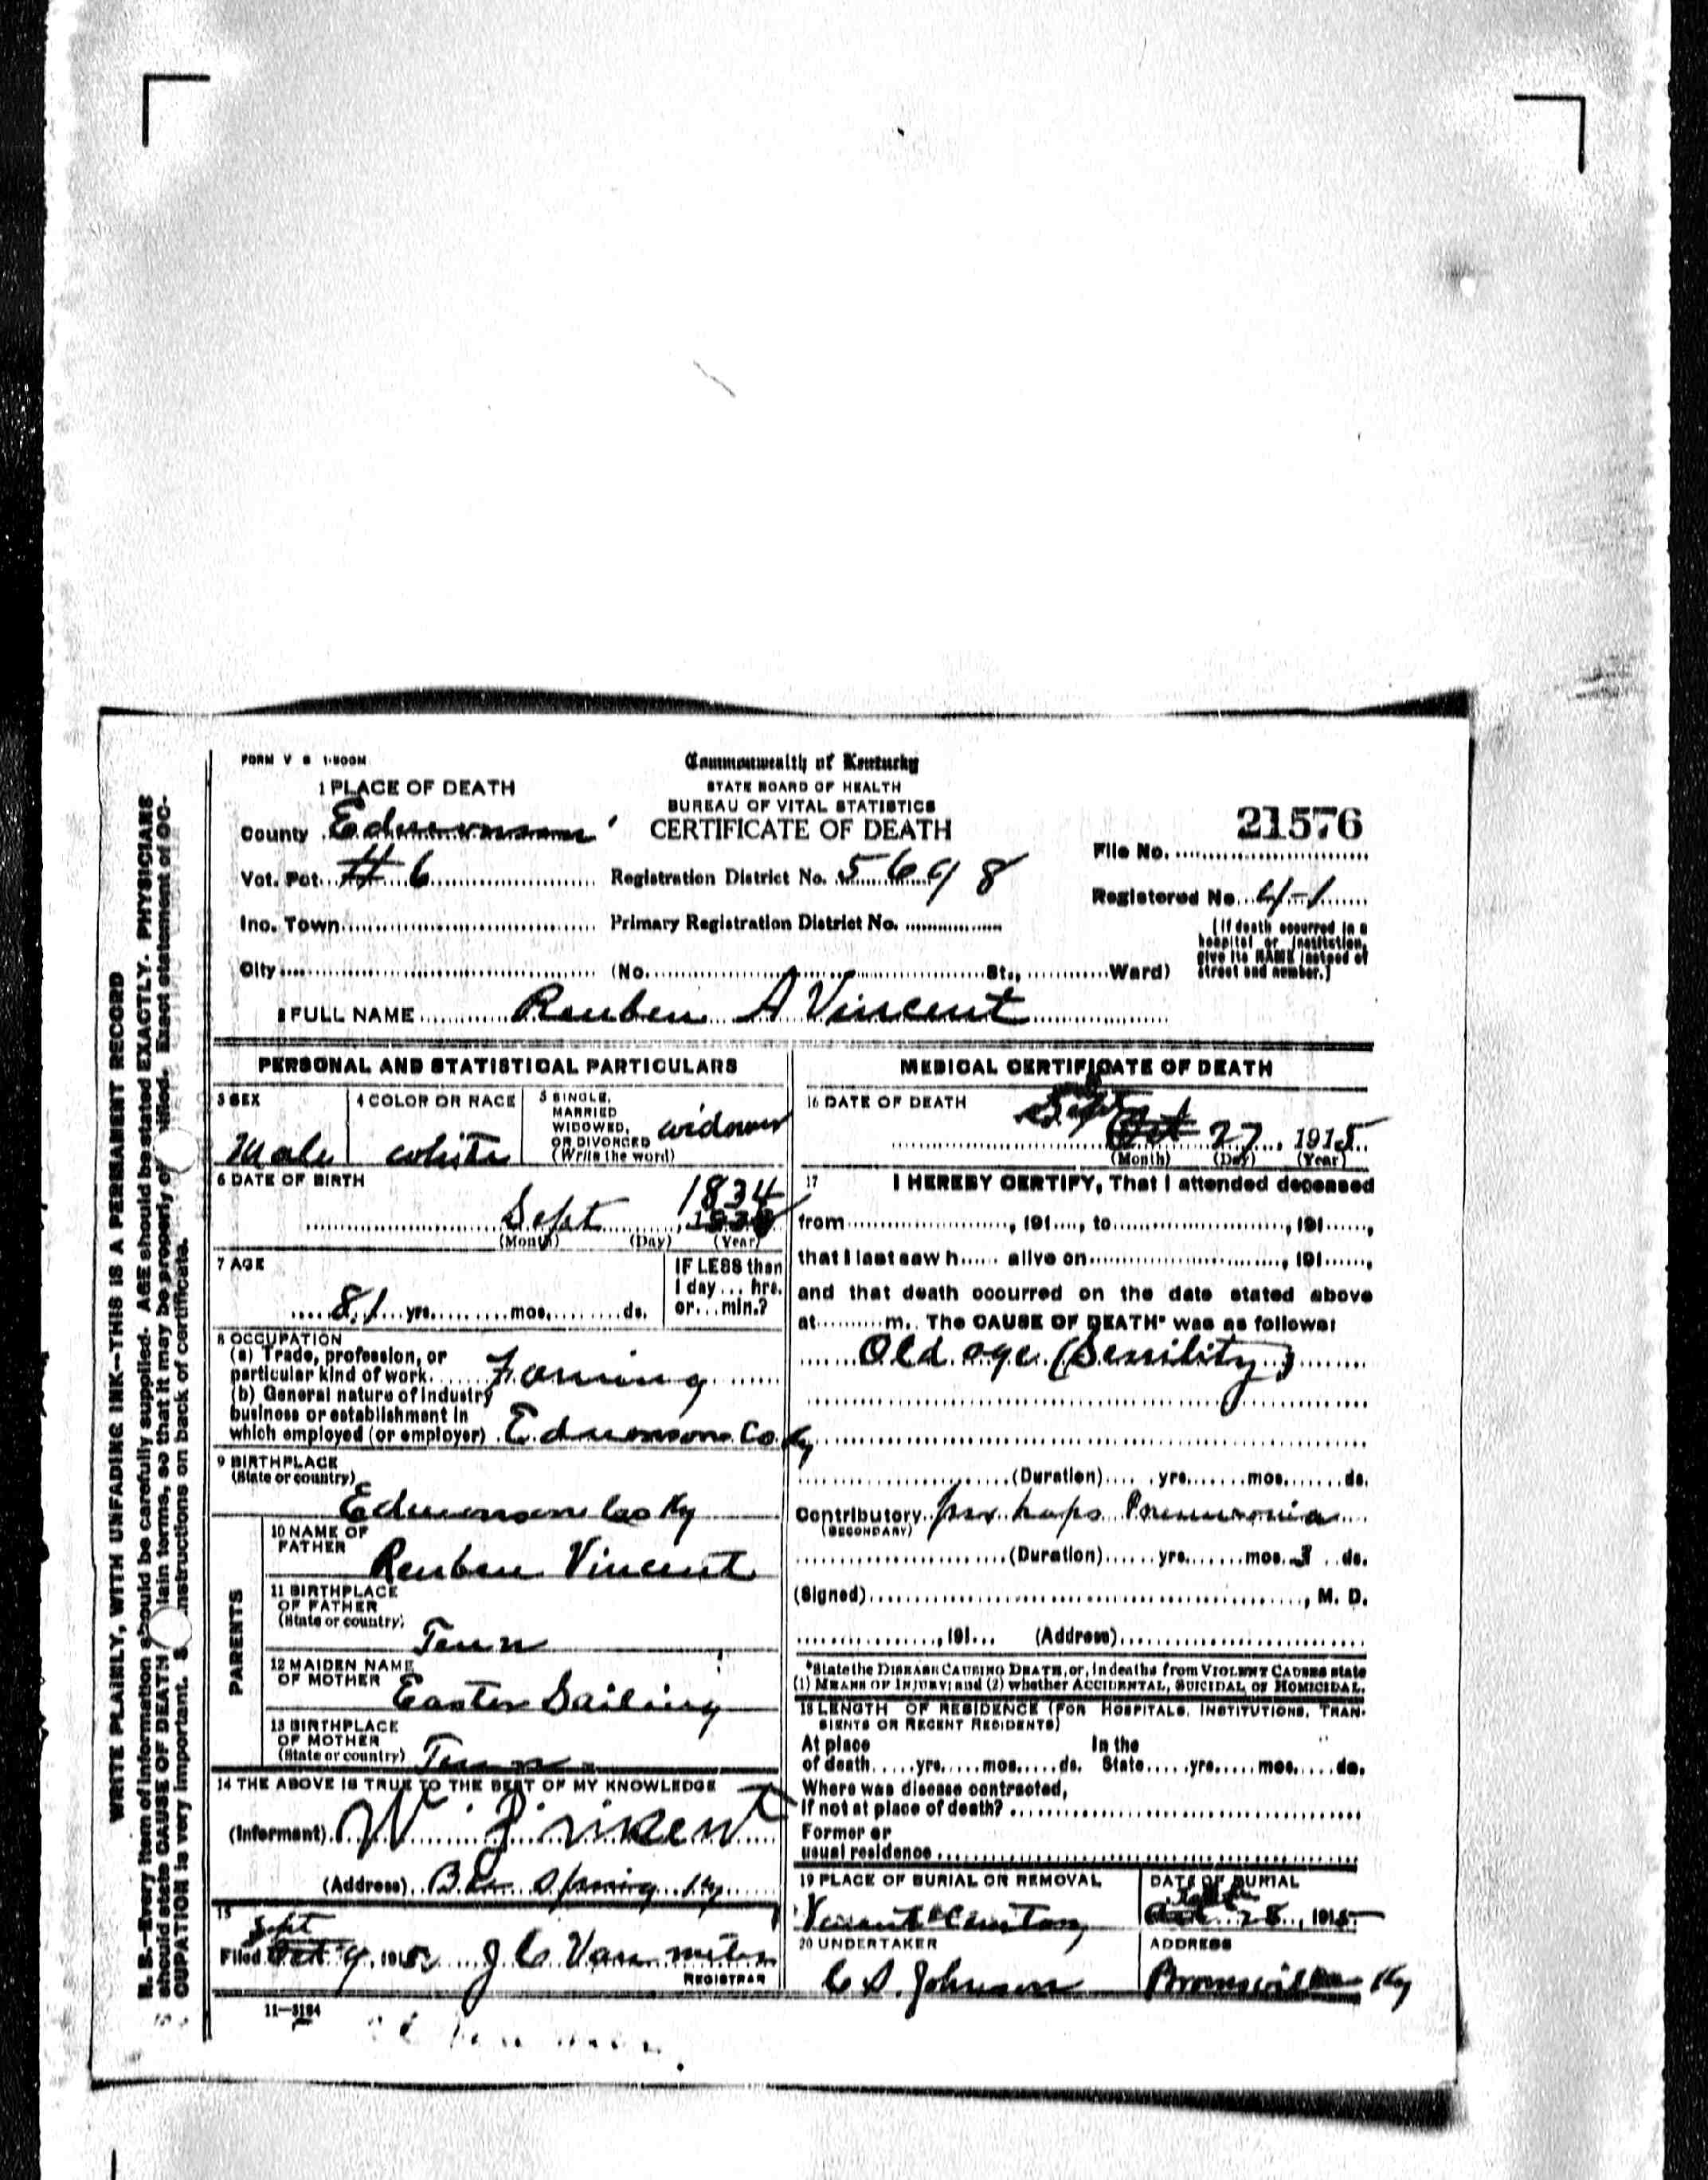 FORM V S 1-500M
Commonwealth of Kentucky
STATE BOARD OF HEALTH
BUREAU OF VITAL STATISTICS
CERTIFICATE OF DEATH
1 PLACE OF DEATH
County Edmonson
Vot. Pct. # 6
Registration District No. 5698
Inc. Town
Primary Registration District No.
City (No. St., Ward)
21576
File No.
Registered No. 41
(If death occurred in a
hospital or institution,
give its NAME instead of
street and number.)
2 FULL NAME Reuben A Vincent
PERSONAL AND STATISTICAL PARTICULARS
3 SEX
Male
4 COLOR OR RACE
white
5 SINGLE,
MARRIED
WIDOWED,
OR DIVORCED
(Write the word)
widower
6 DATE OF BIRTH
1834
Sept
(Month) (Day) (Year)
7 AGE
81 yrs. mos. ds.
IF LESS than
1 day ... hrs.
or ... min.?
8 OCCUPATION
(a) Trade, profession, or
particular kind of work. Farming
(b) General nature of industry
business or establishment in
which employed (or employer) Edmonson Co Ky
9 BIRTHPLACE
(State or country)
Edmonson Co Ky
PARENTS
10 NAME OF
FATHER
Reuben Vincent
11 BIRTHPLACE
OF FATHER
(State or country)
Tenn
12 MAIDEN NAME
OF MOTHER
Easter Sailing
13 BIRTHPLACE
OF MOTHER
(State or country)
Tenn
14 THE ABOVE IS TRUE TO THE BEST OF MY KNOWLEDGE
(Informant) W
(Address) Spring Ky
15
Sept
Filed Oct 9, 1915 J C Van meter
REGISTRAR
11-3184
MEDICAL CERTIFICATE OF DEATH
16 DATE OF DEATH
Sept
Oct 27, 1915
(Month) (Day) (Year)
17 I HEREBY CERTIFY, That I attended deceased
from , 191 , to , 191 ,
that I last saw h alive on , 191 ,
and that death occurred on the date stated above
at m. The CAUSE OF DEATH* was as follows:
Old age (Senility)
(Duration) yrs. mos. ds.
Contributory perhaps Pneumonia
(SECONDARY)
(Duration) yrs. mos. 3 ds.
(Signed) , M. D.
, 191 (Address)
*State the DISEASE CAUSING DEATH, or, in deaths from VIOLENT CAUSES state
(1) MEANS OF INJURY; and (2) whether ACCIDENTAL, SUICIDAL, OF HOMICIDAL.
18 LENGTH OF RESIDENCE (FOR HOSPITALS, INSTITUTIONS, TRAN-
SIENTS OR RECENT RESIDENTS)
At place In the
of death yrs. mos. ds. State yrs. mos. ds.
Where was disease contracted,
If not at place of death?
Former or
usual residence
19 PLACE OF BURIAL OR REMOVAL
Vincent
DATE OF BURIAL
Oct 28, 1915
20 UNDERTAKER
C S. Johnson
ADDRESS
Brownsville Ky
WRITE PLAINLY, WITH UNFADING INK—THIS IS A PERMANENT RECORD
N. B.—Every item of information should be carefully supplied. AGE should be stated EXACTLY. PHYSICIANS
should state CAUSE OF DEATH lain terms, so that it may be properly Exact statement of OC-
CUPATION is very important. nstructions on back of certificate.